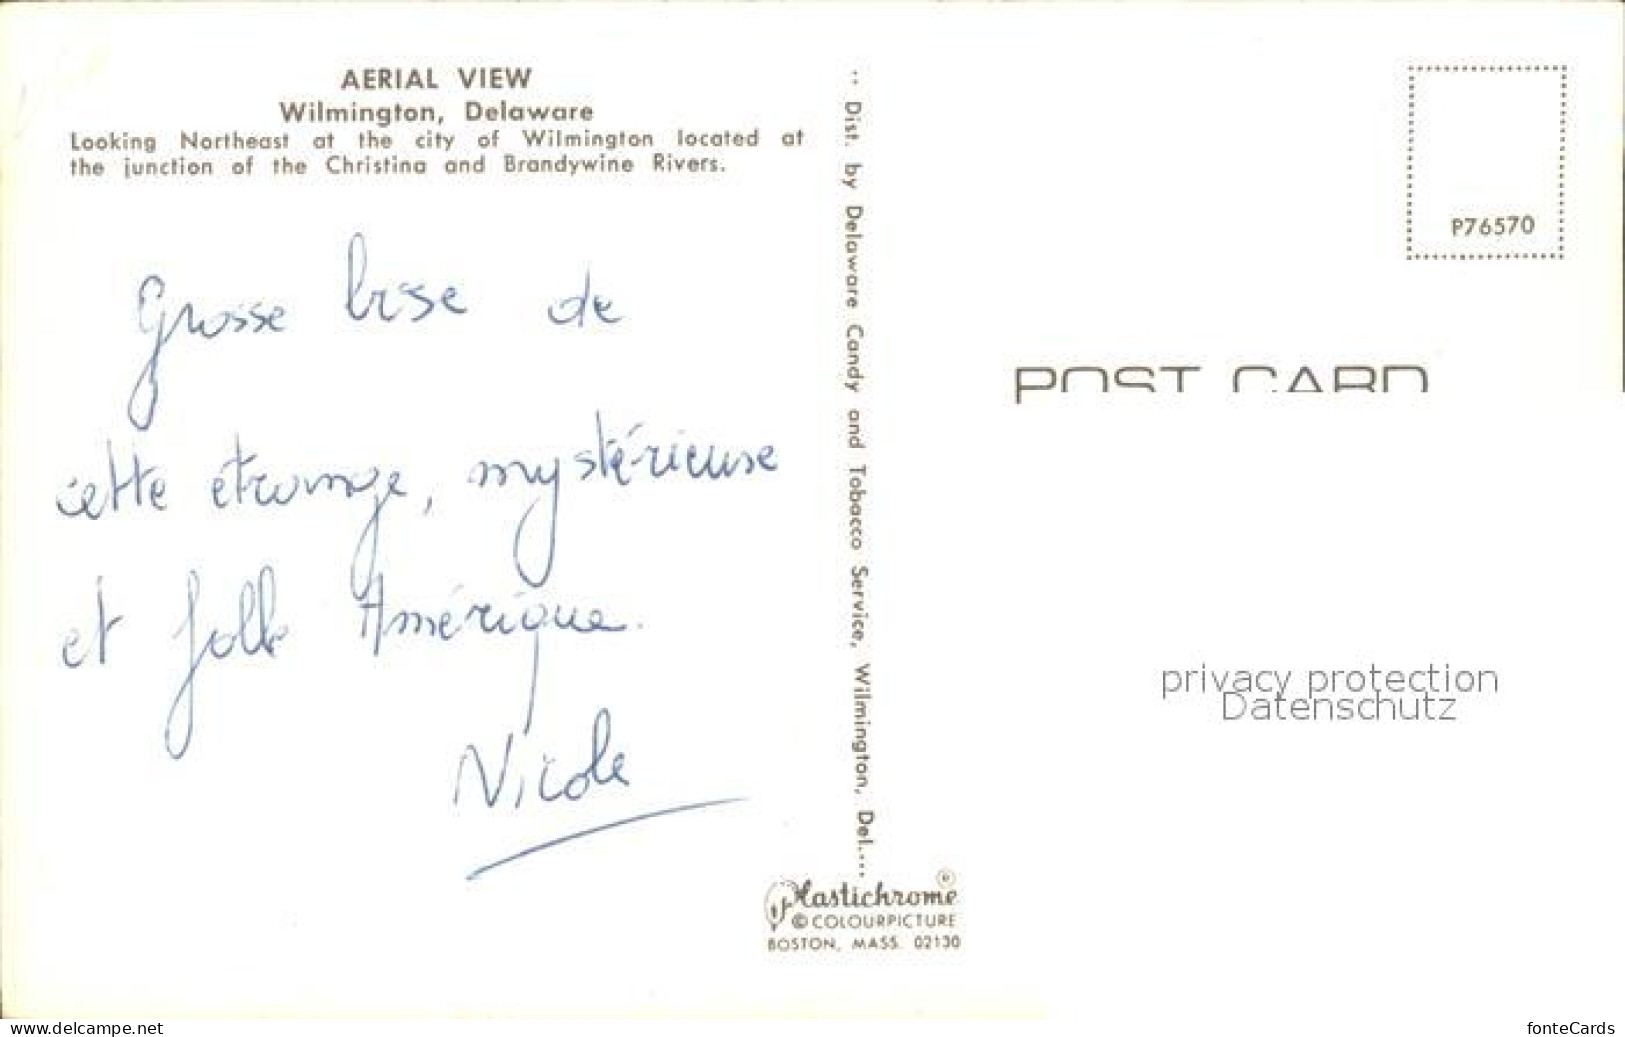 AERIAL VIEW
Wilmington, Delaware
Looking Northeast at the city of Wilmington located at
the junction of the Christina and Brandywine Rivers.
Grosse bise de
cette étrange, mystérieuse
et folle Amérique.
Nicole
·· Dist. by Delaware Candy and Tobacco Service, Wilmington, Del....
Plastichrome ®
© COLOURPICTURE
BOSTON, MASS. 02130
P76570
POST CARD
privacy protection
Datenschutz
www.delcampe.net
fonteCards